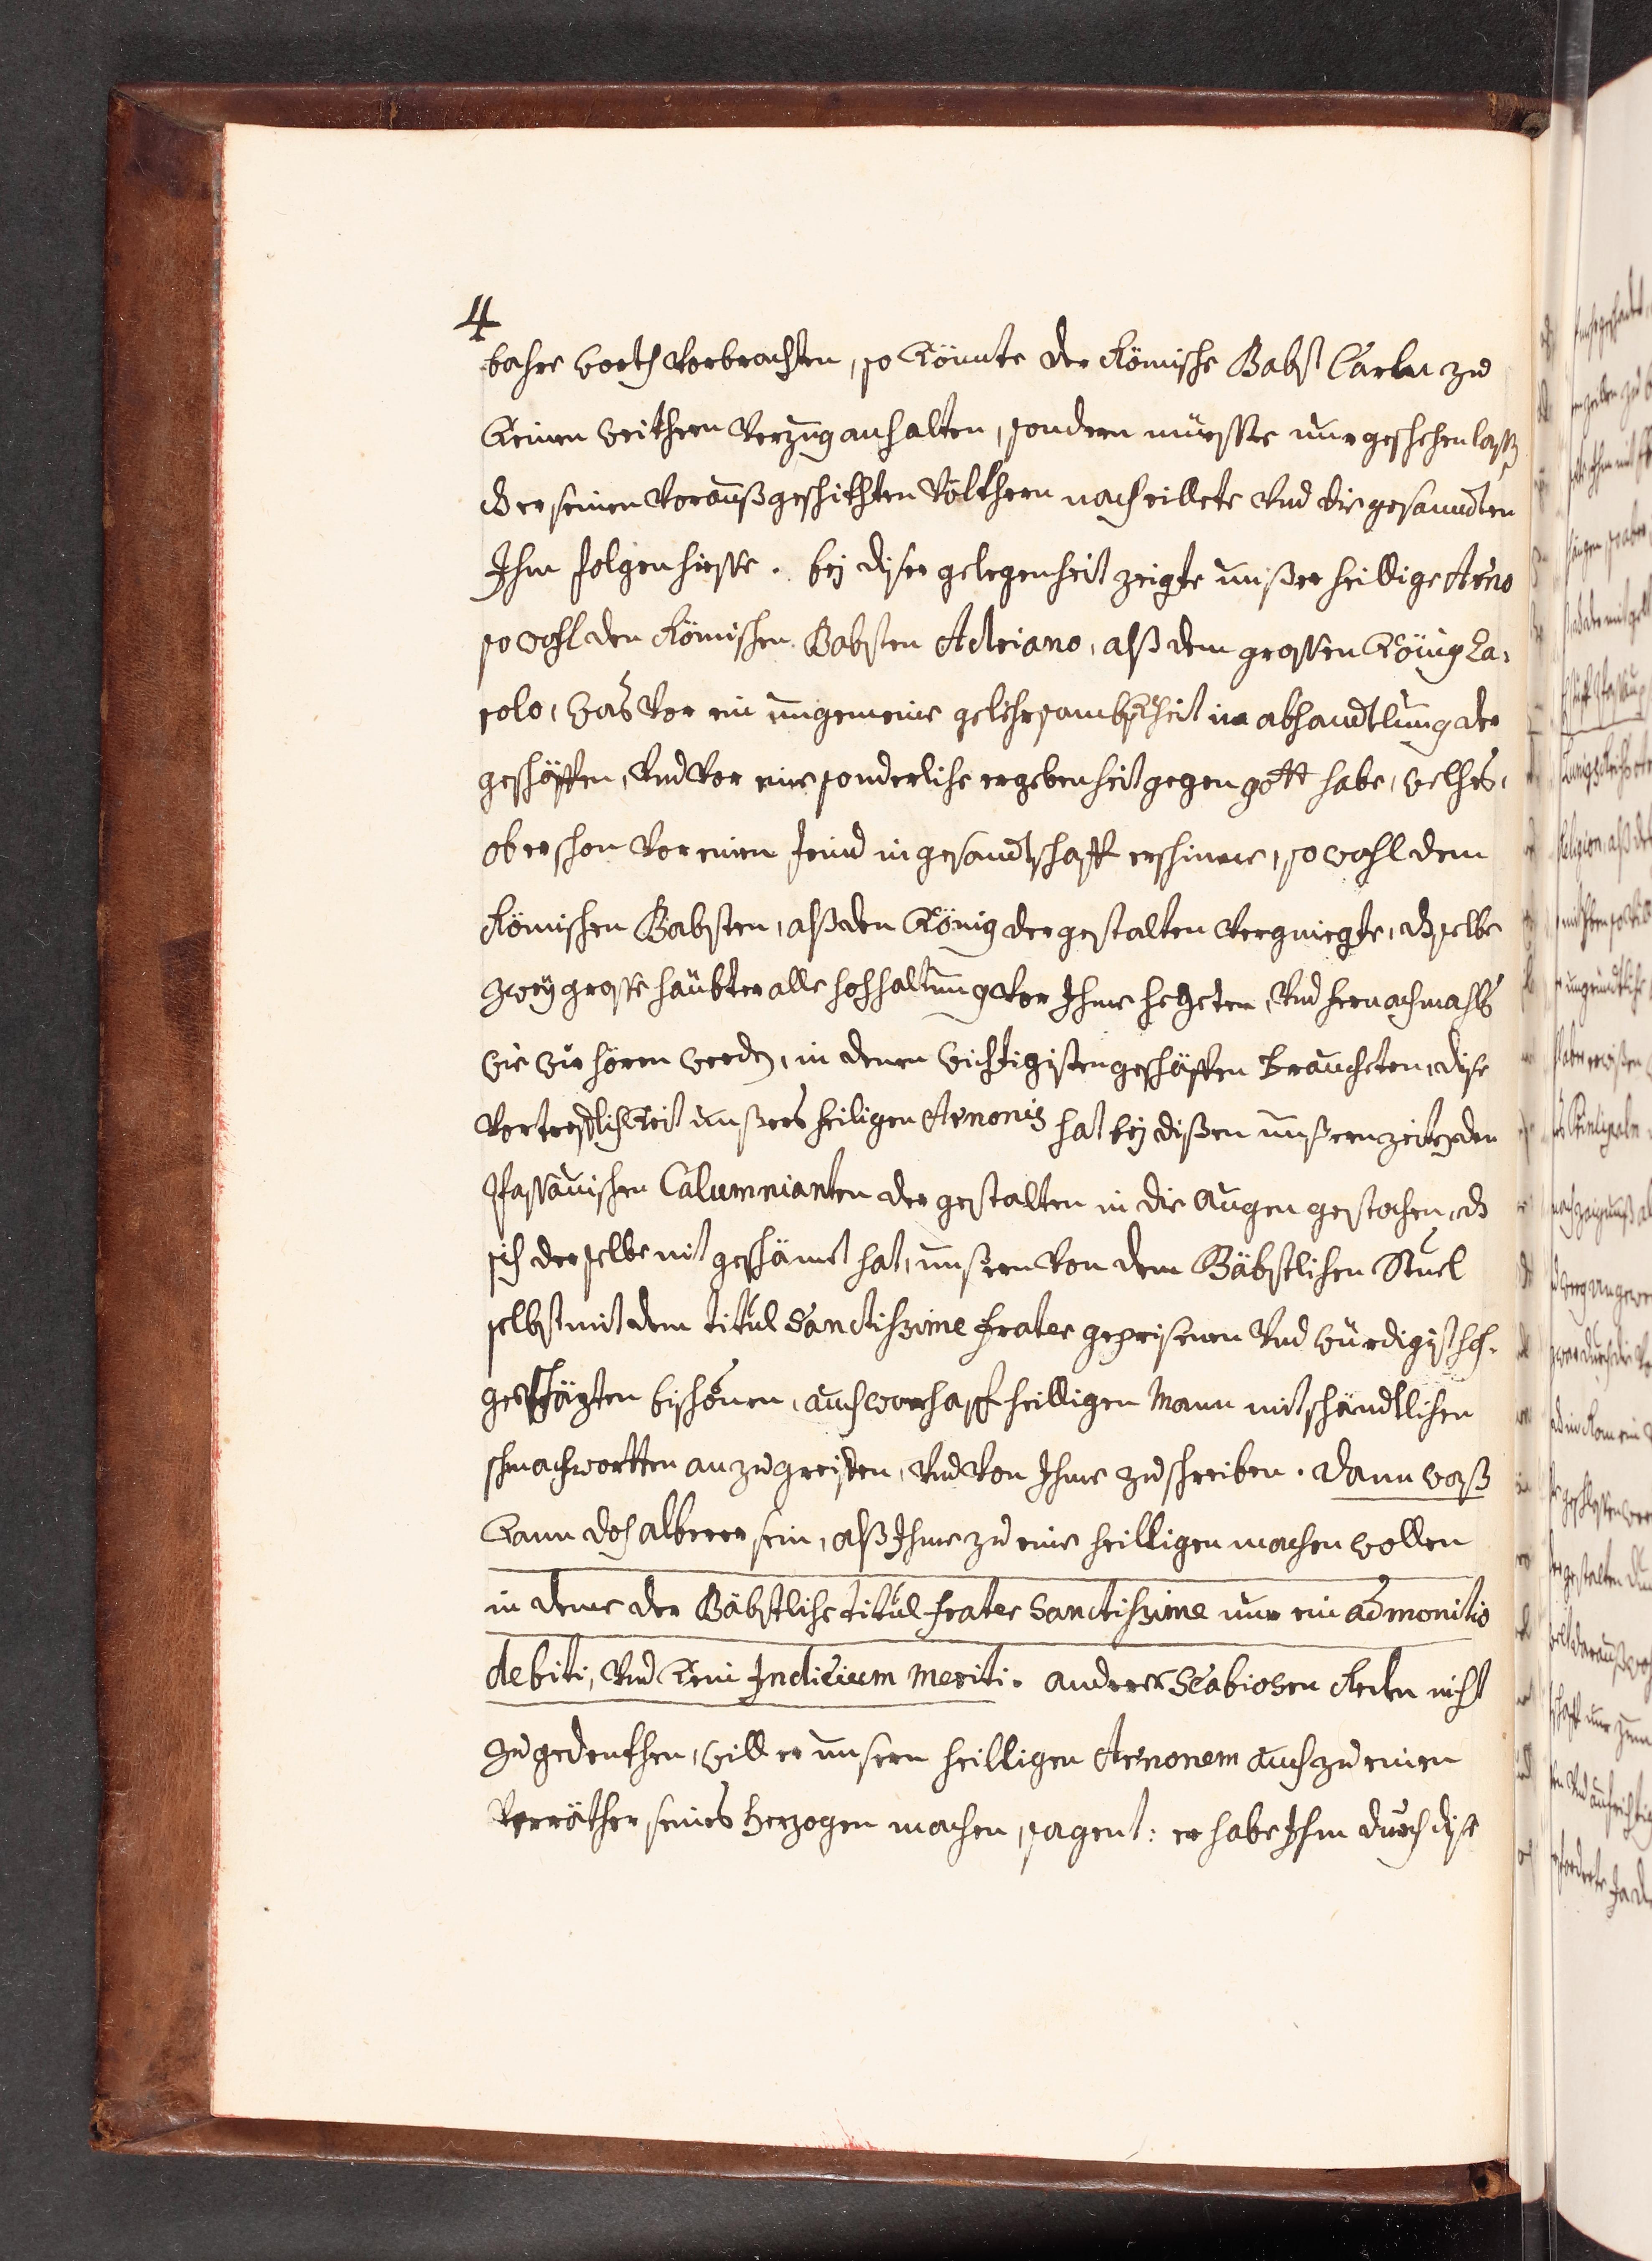 4
bahre worth vorbrachten, so könnte der Römische Babst Carln zu
keinen weithern verzug anhalten, sondern muesste nur geschehen lassen
dz er seinen voraußgeschikhten völkhern nacheillete und die gesanndten
Ihm folgen hiesse. bey diser gelegenheit zeigte unßer heillige Arno
so wohl den Römischen Babsten Adriano, alß dem grossen König Ca-
rolo, was vor ein ungemeine gelehrsambkheit in abhandtlung der
geschäfften, und vor eine sonderliche ergebenheit gegen gott habe, welches,
ob er schon vor einen feind in gesandtschafft erschinne, so wohl dem
Römischen Babsten, alß den König dergestalten vergniegte, dz selbe
zwey grosse häubter alle hochhaltung vor Ihme hegeten, und hernachmahls
wie wir hören werden, in denen wichtigisten geschäfften braucheten, dise
vortrefflichkeit unßers heiligen Arnonis hat bey dißen unßern zeiten den
Passauischen Calumnianten der gestalten in die Augen gestochen, dz
sich derselbe nit geschämet hat, unßern von dem Bäbstlichen Stuel
selbst mit dem titul Sanctissime frater geprisenen und würdigist hoch-
geschäzten bischoven, auch warhafft heilligen Mann mit schändtlichen
schmachwortten anzugreiffen, und von Ihme zu schreiben. dann waß
kann doch alberer sein, alß Ihme zu eine heilligen machen wollen
in deme der Bäbstliche titul frater Sanctissime nur ein admonitio
debiti, und kein Indicium meriti. anderer Scabiosen Reden nicht
zu gedenkhen, will er unsern heilligen Arnonem auch zu einen
Verräther seines Herzogen machen, sagent: er habe Ihm durch dise